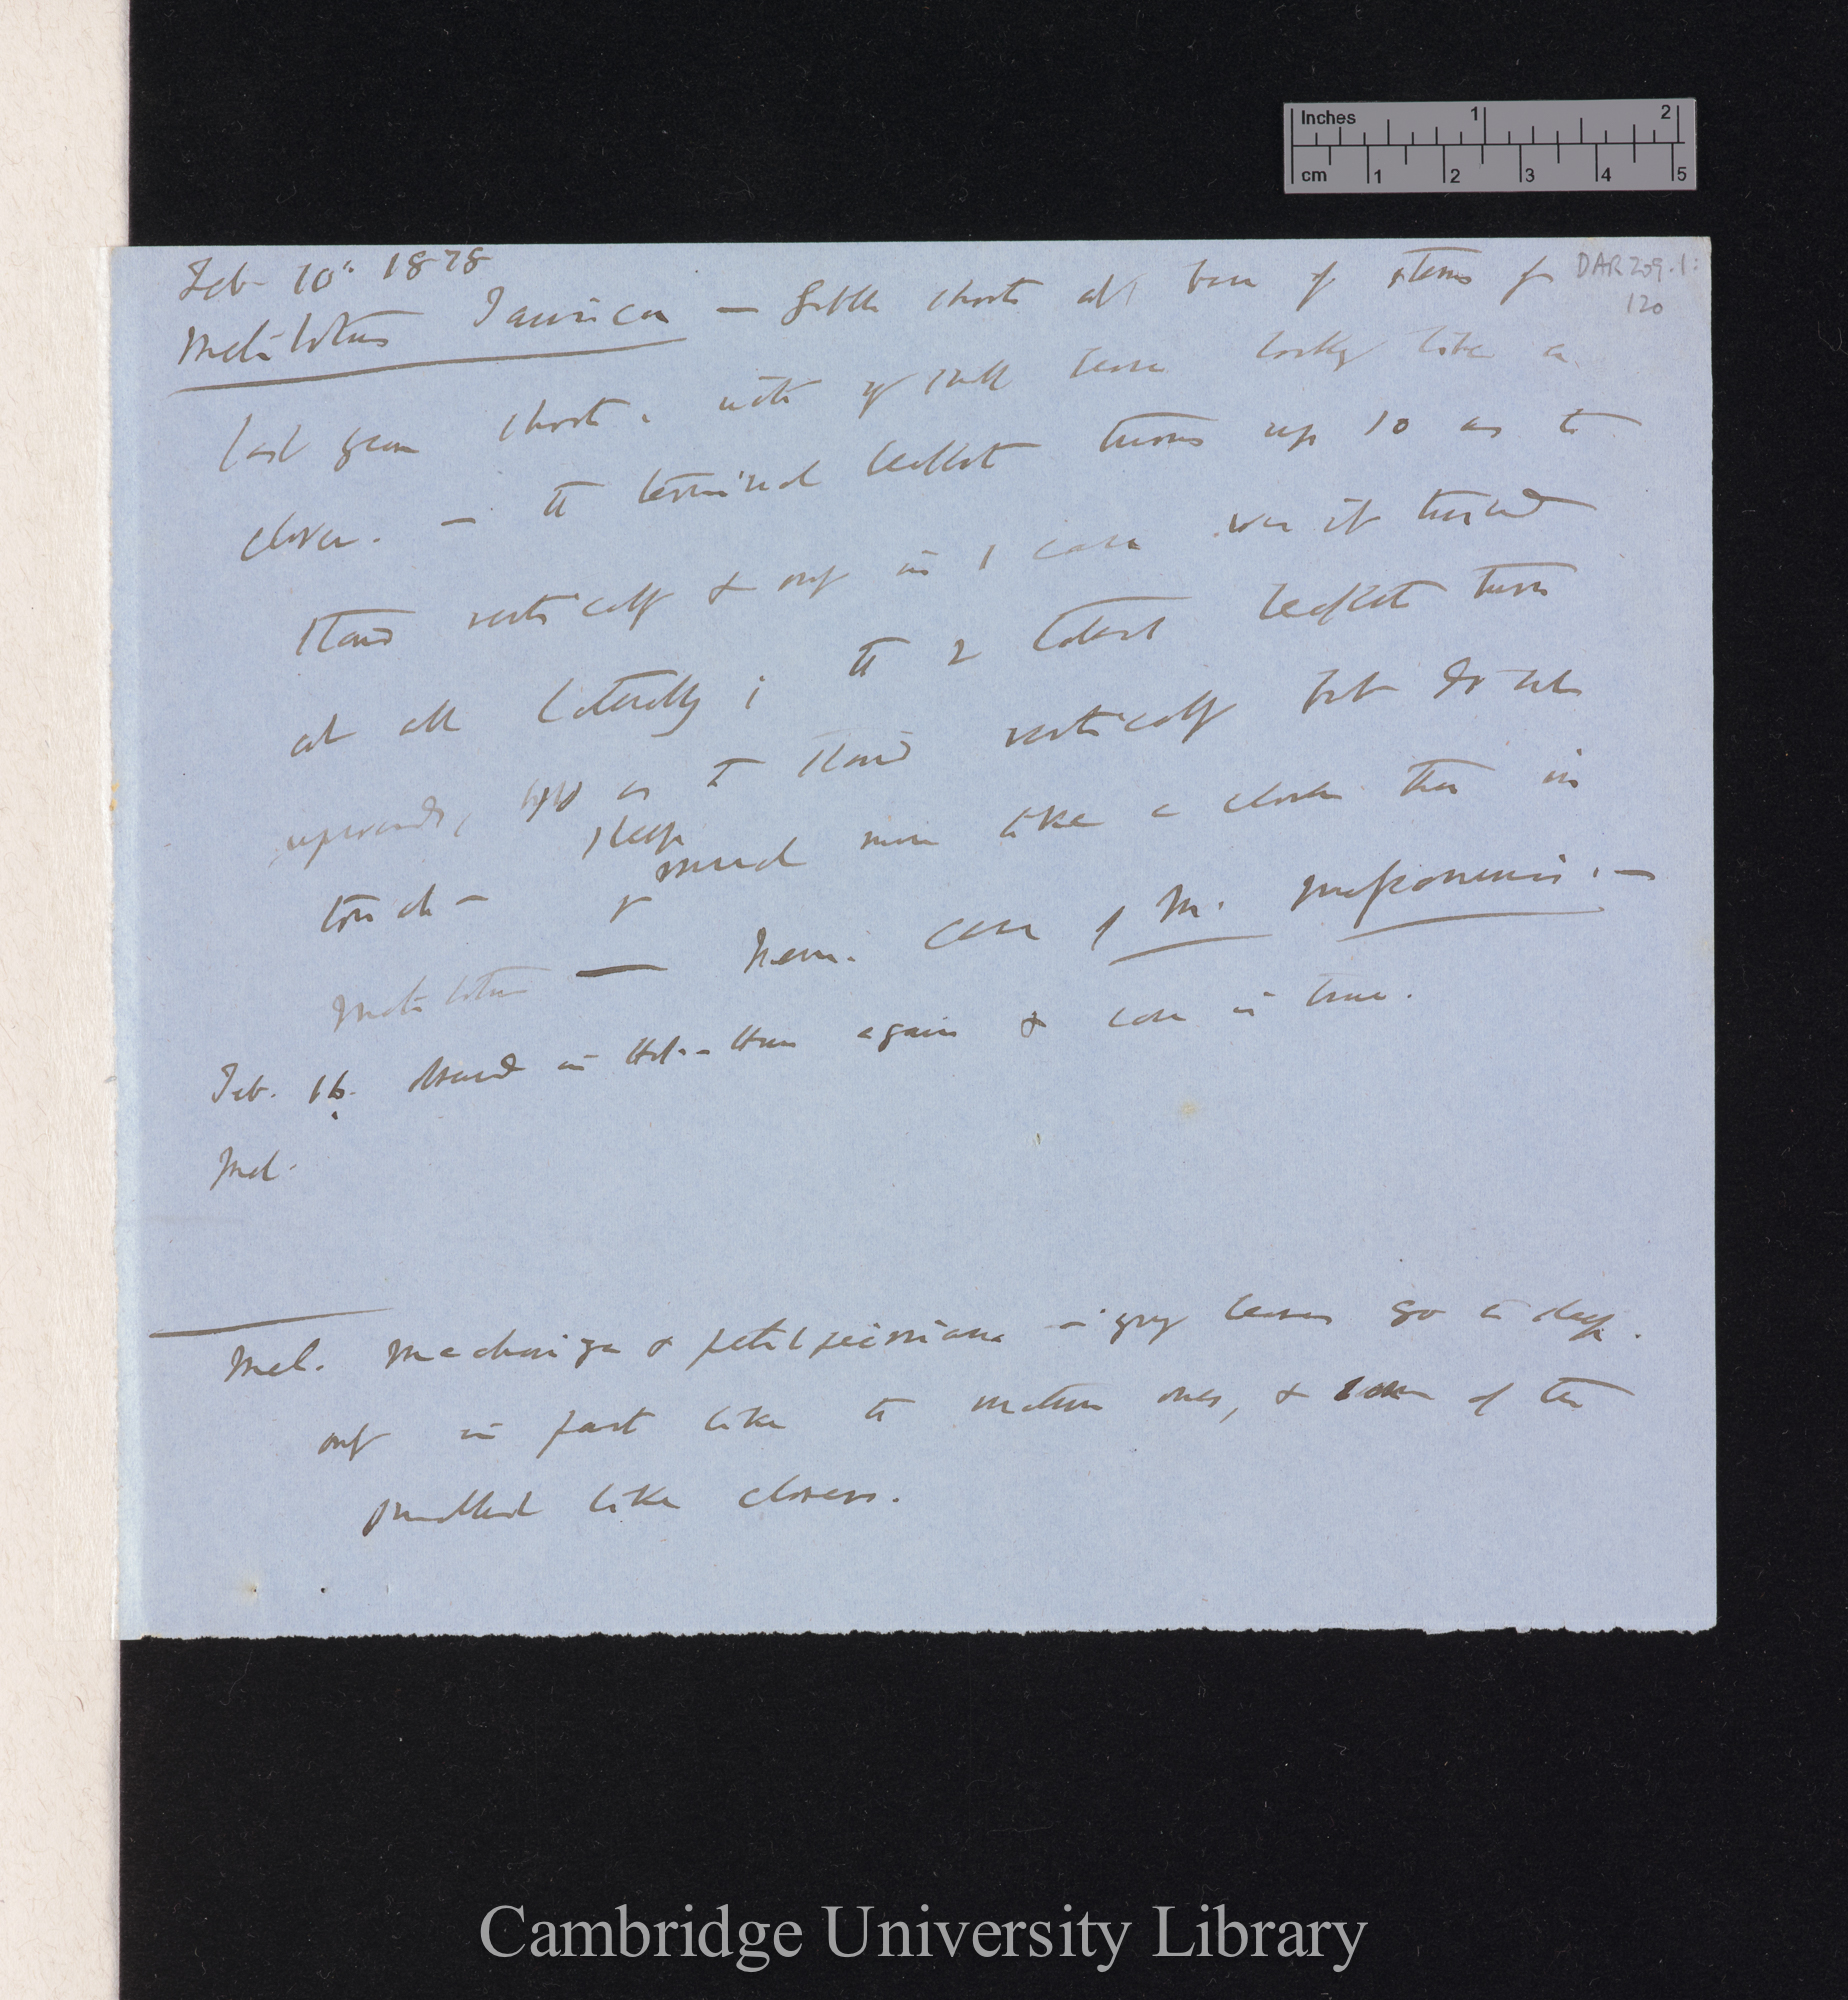 Inches 1 2
cm 1 2 3 4 5
DAR 209.1:
120
Feb 10th 1878
Melilotus Taurica — little shoots at base of stems of
last years shoots, with small leaves looking like a
clover. — the terminal leaflet turns up so as to
stand vertically & only in 1 case was it twisted
at all laterally; the 2 lateral leaflets turn
upwards, so as to stand vertically but do not
touch — sleep much more like a clover than in
Melilotus — Mem. case of M. messanensis. —
Feb. 16. observed in Hot-House again & case is true.
Mel.
Mel. & petitpierriana — young leaves go to sleep.
only in part like the mature ones, & some of the
smallest like clovers.
Cambridge University Library